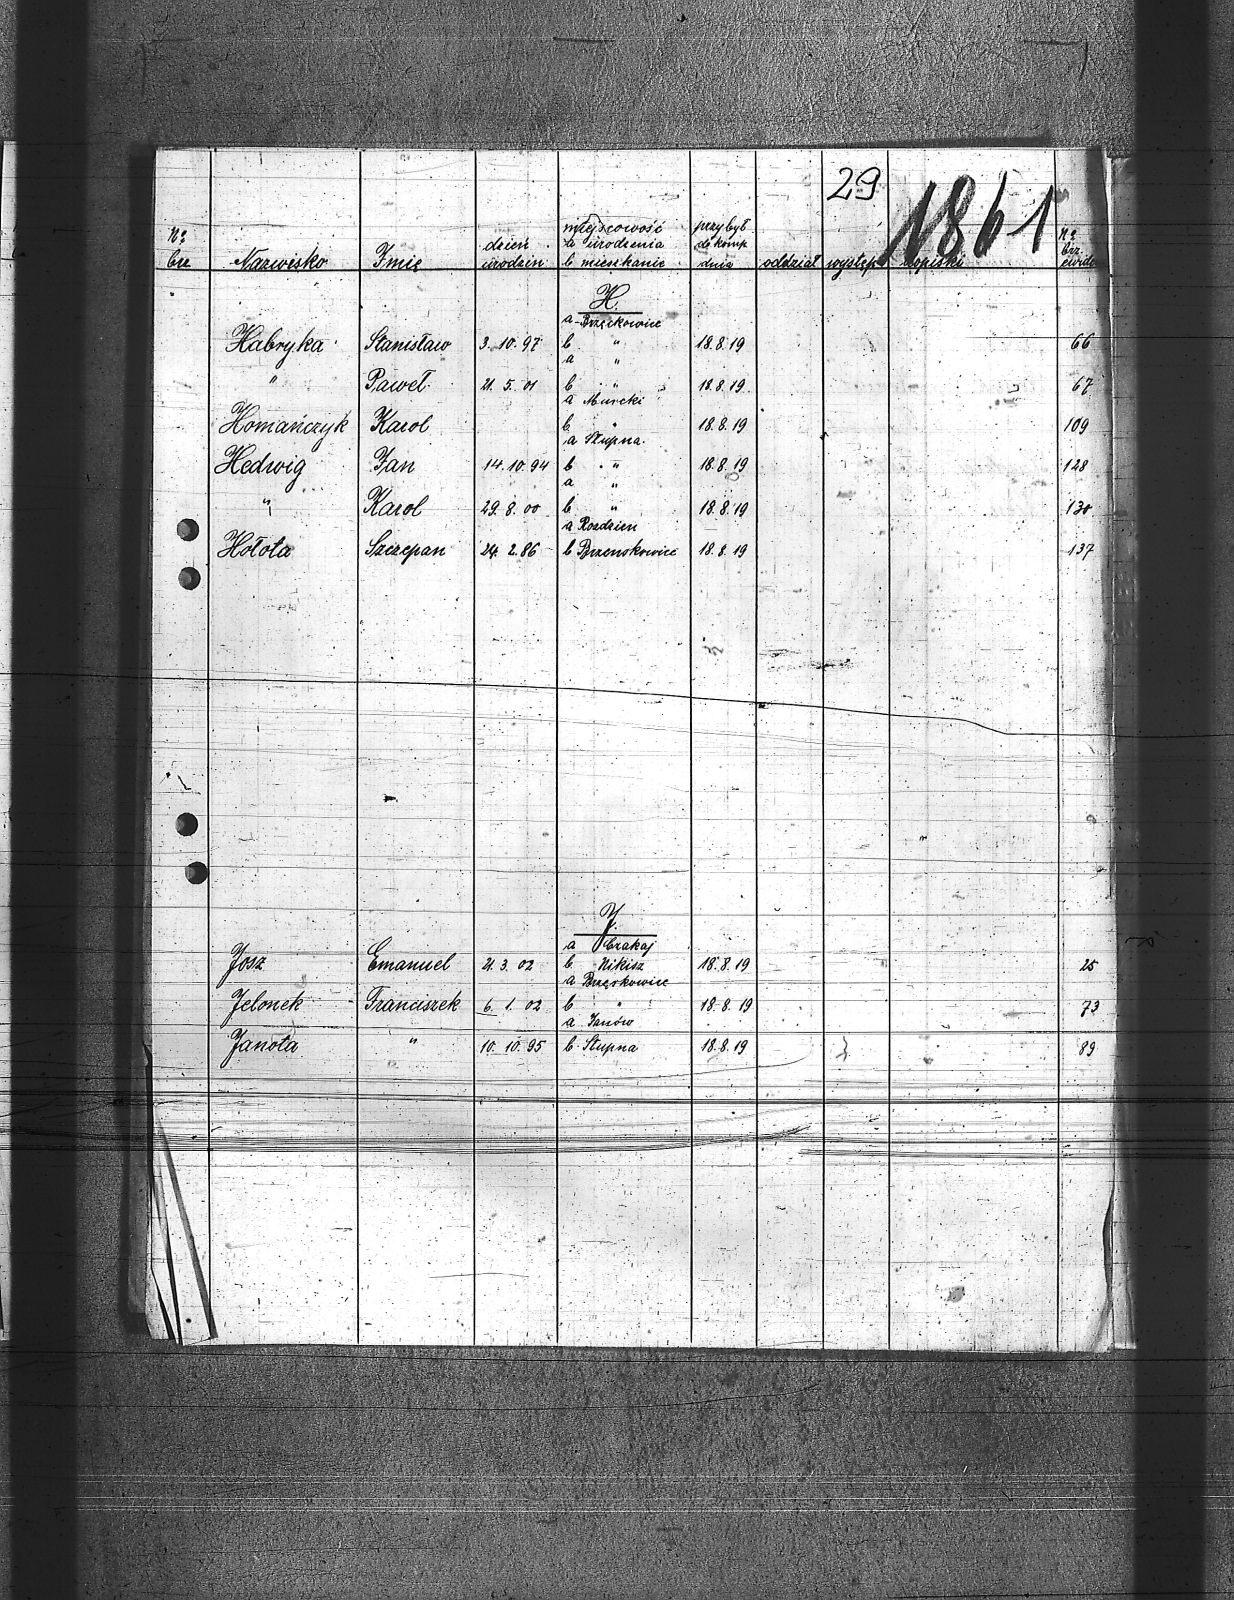 29
1861
№ bż. Nazwisko Imię dzień urodzin miejscowość a urodzenia b mieszkanie przybył do komp dnia oddział występ dopiski № bż. ewiden
H.
a Brzęckowice
Habryka Stanisław 3. 10. 97 b " 18. 8. 19 66
a "
" Paweł 21. 5. 01 b " 18. 8. 19 67
a Murcki
Homańczyk Karol b " 18. 8. 19 109
a Słupna.
Hedwig Jan 14. 10. 94 b " 18. 8. 19 128
a "
" Karol 29. 8. 00 b " 18. 8. 19 130
a Rozdzien
Hołota Szczepan 24. 2. 86 b Brzenskowice 18. 8. 19 137
J.
a Czakaj
Josz Emanuel 21. 3. 02 b Nikisz 18. 8. 19 25
a Brzęskowice
Jelonek Franciszek 6. 1. 02 b " 18. 8. 19 73
a Janów
Janota " 10. 10. 95 b Słupna 18. 8. 19 89